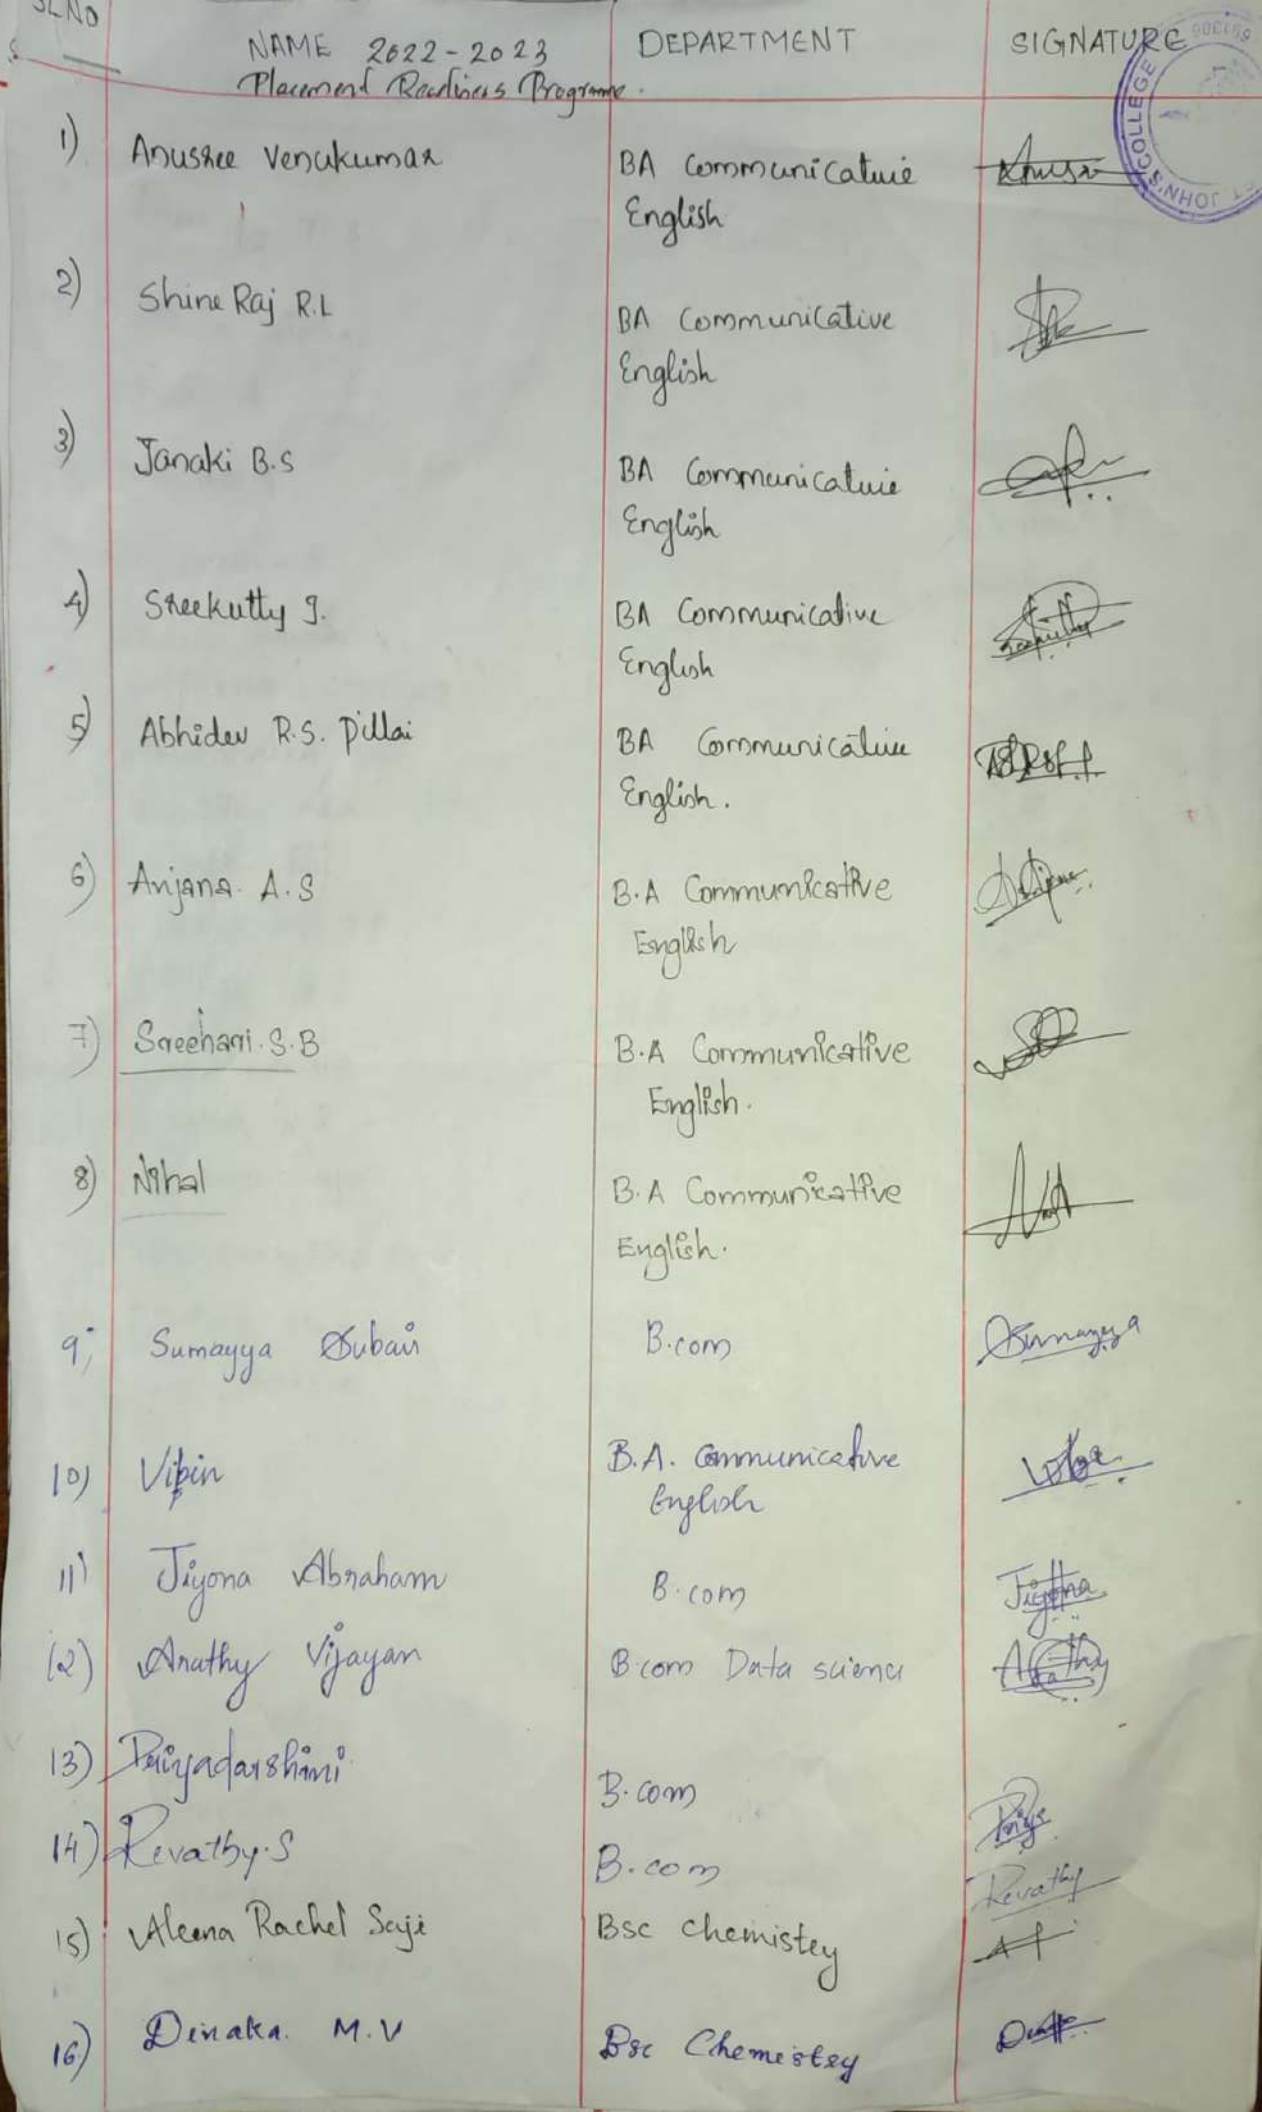 SL NO NAME 2022-2023 DEPARTMENT SIGNATURE
Placement Readiness Programme.
1) Anusree Venukumar BA Communicative
English
2) Shine Raj R.L BA Communicative
English
3) Janaki B.S BA Communicative
English
4) Sreekutty J. BA Communicative
English
5) Abhidev R.S. Pillai BA Communicative
English.
6) Anjana. A.S B.A Communicative
English
7) Sreehari.S.B B.A Communicative
English.
8) Nihal B.A Communicative
English.
9; Sumayya Subair B.com Sumayya
10) Vipin B.A. Communicative
English
11) Jiyona Abraham B.com Jiyona
12) Arathy Vijayan B.com Data science
13) Priyadarshini B.com Priya
14) Revathy.S B.com Revathy
15) Aleena Rachel Saji Bsc Chemistry
16) Dinaka. M.V Bsc Chemistry
ST. JOHN'S COLLEGE